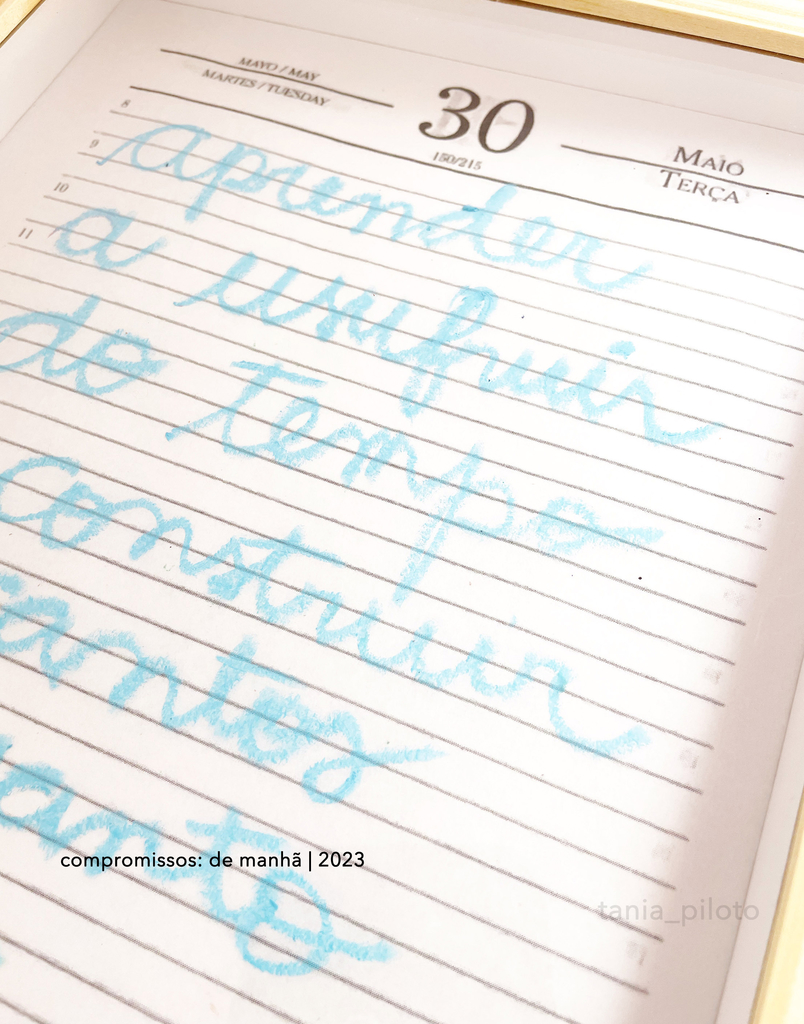 MAYO / MAY
MARTES / TUESDAY
30
150/215
MAIO
TERÇA
8
9
10
11
aprender
a usufruir
do tempo
construir
compromissos: de manhã | 2023
tania_piloto